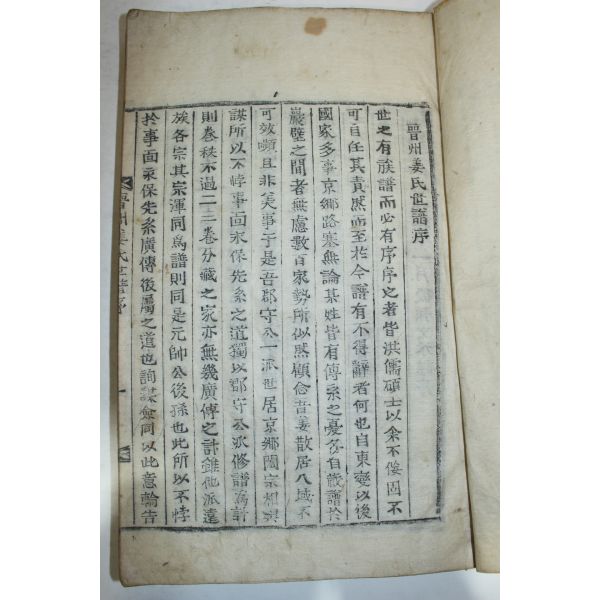 晉州姜氏世譜序
世之有族譜而必有序序之者皆洪儒碩士以余不佞固不
可自任其責然而至於今譜有不得辭者何也自東變以後
國家多事京鄉路塞無論某姓皆有傳系之憂各自設譜於
巖壁之間者無慮數百家勢所似然顧念吾姜散居八域不
可效嚬且非美事于是吾郡守公一派世居京鄉闔宗相與
謀所以不悖事面永保先系之道獨以郡守公派修譜爲計
則卷秩不過二三卷分藏之家亦無幾廣傳之計雖他派遠
族各宗其宗渾同爲譜則同是元帥公後孫也此所以不悖
於事面永保先系廣傳後屬之道也詢謀僉同以此意輪告
晉州姜氏世譜序